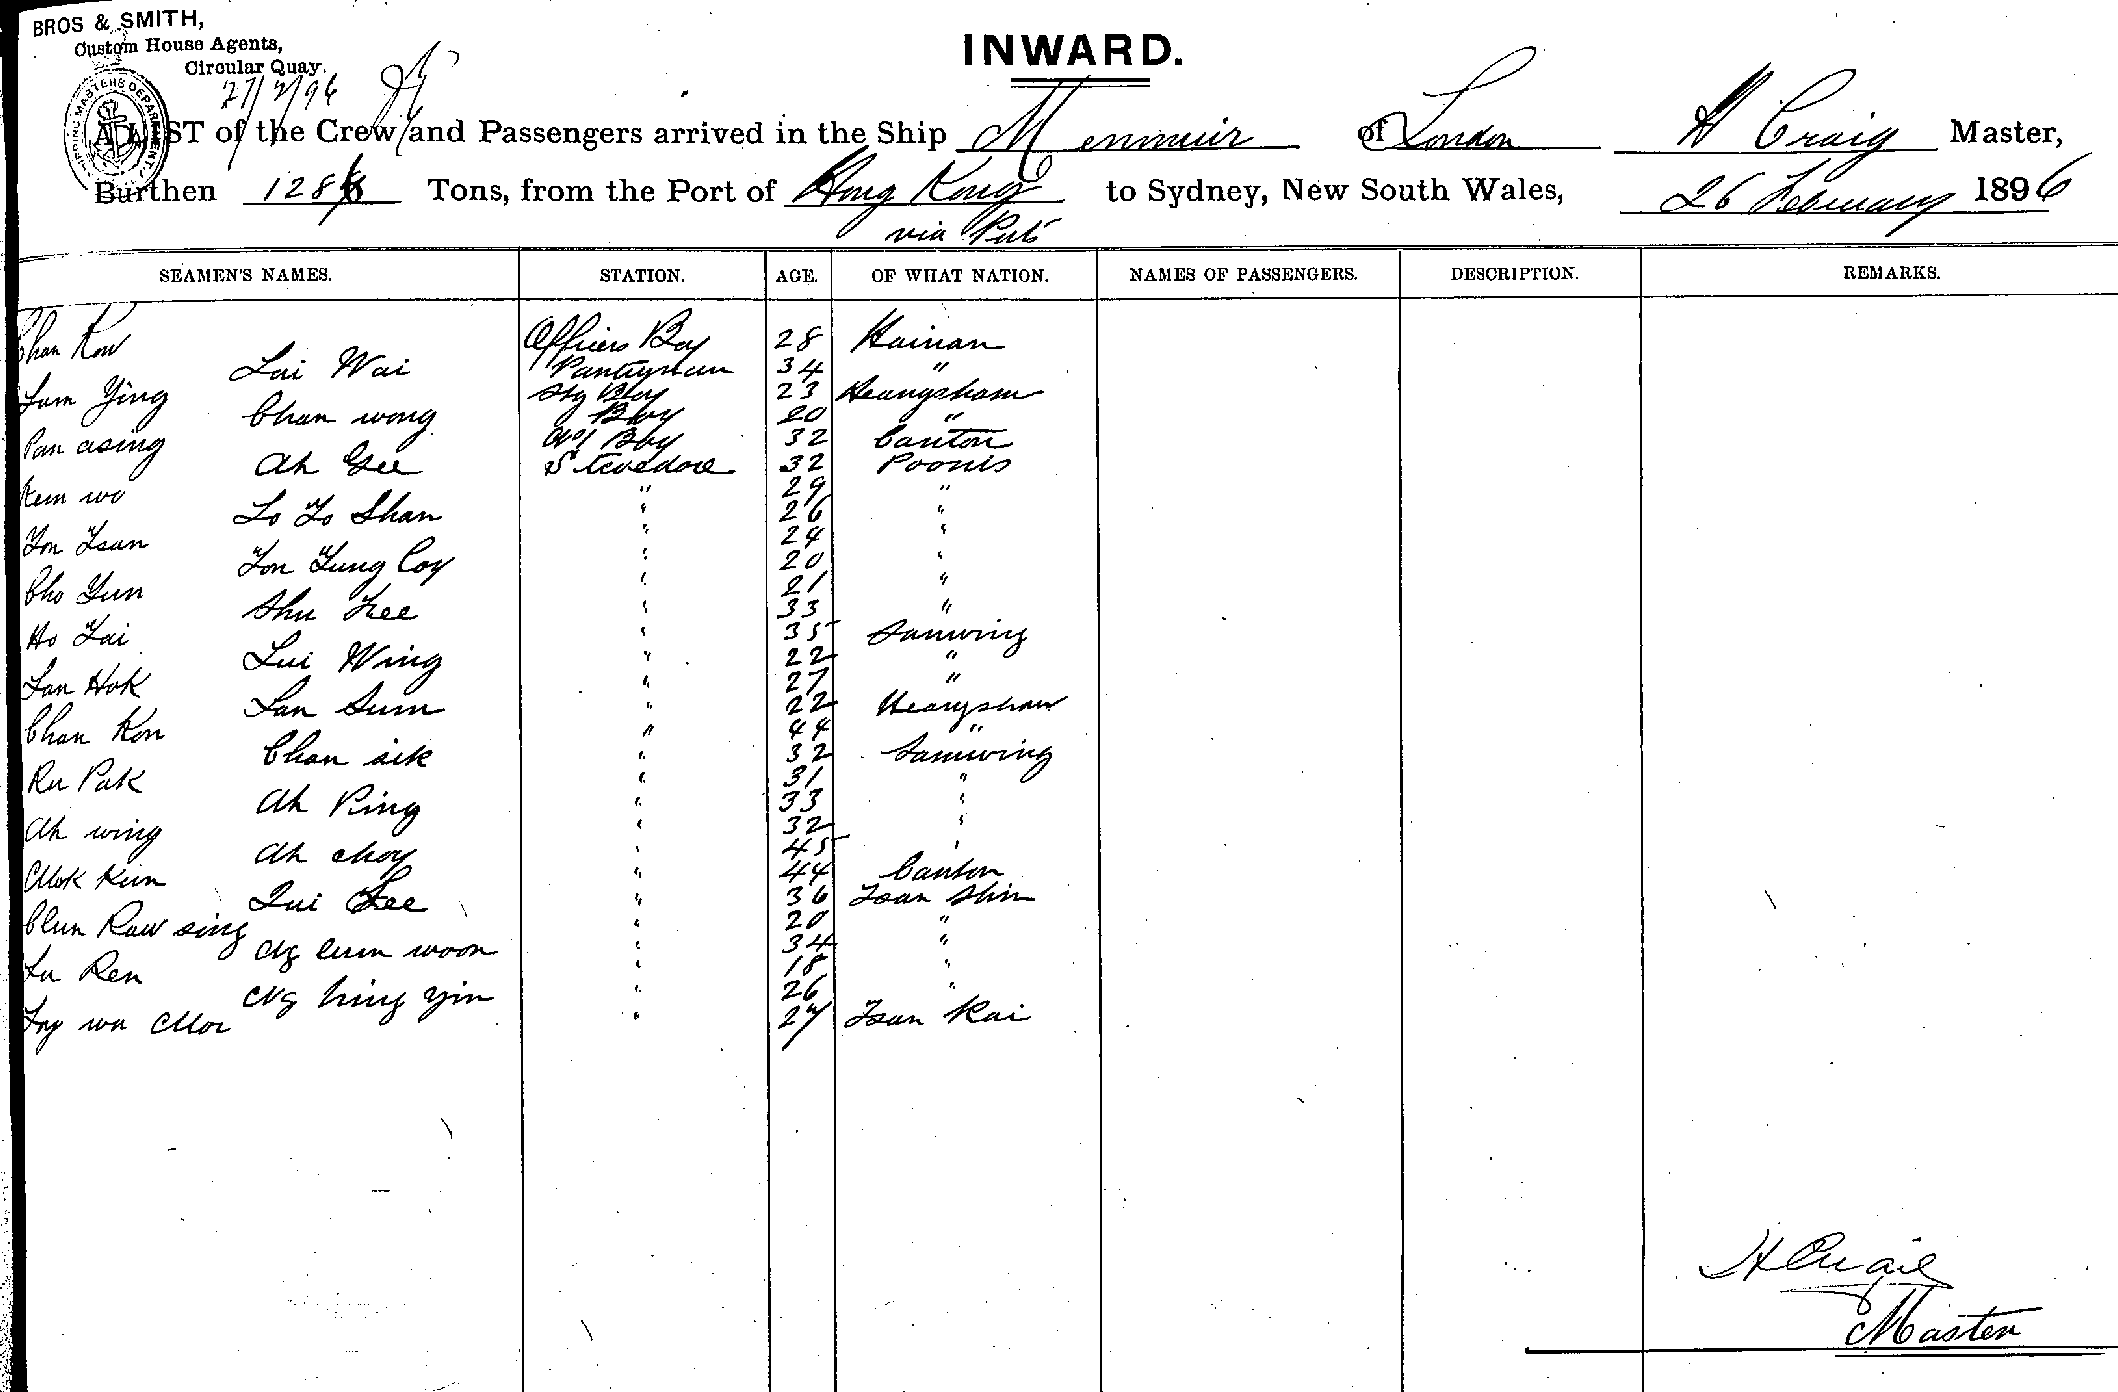 BROS & SMITH,
Custom House Agents,
Circular Quay.
27/2/96
INWARD.
A LIST of the Crew and Passengers arrived in the Ship Menmuir of London H Craig Master,
Burthen 1288 Tons, from the Port of Hong Kong to Sydney, New South Wales, 26 February 1896
via Pts
SEAMEN'S NAMES. STATION. AGE. OF WHAT NATION. NAMES OF PASSENGERS. DESCRIPTION. REMARKS.
Chan Kow Officers Boy 28 Hainan
Lai Wai Pantryman 34 "
Lum Ying Stg Boy 23 Heangsham
Chan wong Boy 20 "
Pan asing Boy 32 Canton
Ah Gee Stevedore 32 Poonis
Kem wo " 29 "
Lo Lo Shan " 26 "
Yon Tsun " 24 "
Yon Yung Coy " 20 "
Cho Yun " 21 "
Shu Lee " 33 "
Ho Tai " 35 Sanwing
Lui Wing " 22 "
Lan Hok " 27 "
Lan Sum " 22 Heangshan
Chan Kon " 44 "
Chan sik " 32 Samwing
Ru Pak " 31 "
Ah Ping " 33 "
Ah wing " 32 "
Ah choy " 45 "
Mok Kun " 44 Canton
Lui Lee " 36 Tsan Shin
Chun Kaw sing " 20 "
Ng lum woon " 34 "
Lu Ken " 18 "
Ng hing yin " 26 "
wa Moi " 27 Tsan Kai
H Craig
Master